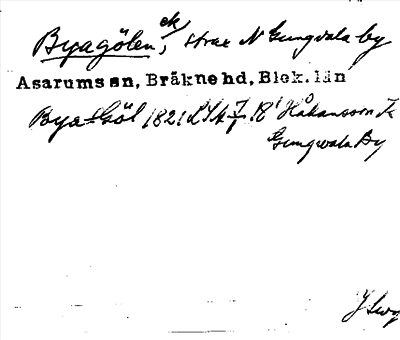 Byagölen, ek
strax N Gungvala by
Asarums sn, Bräkne hd, Blek. län
Bya Göl 1821 LSA Håkansson
Gungvala By